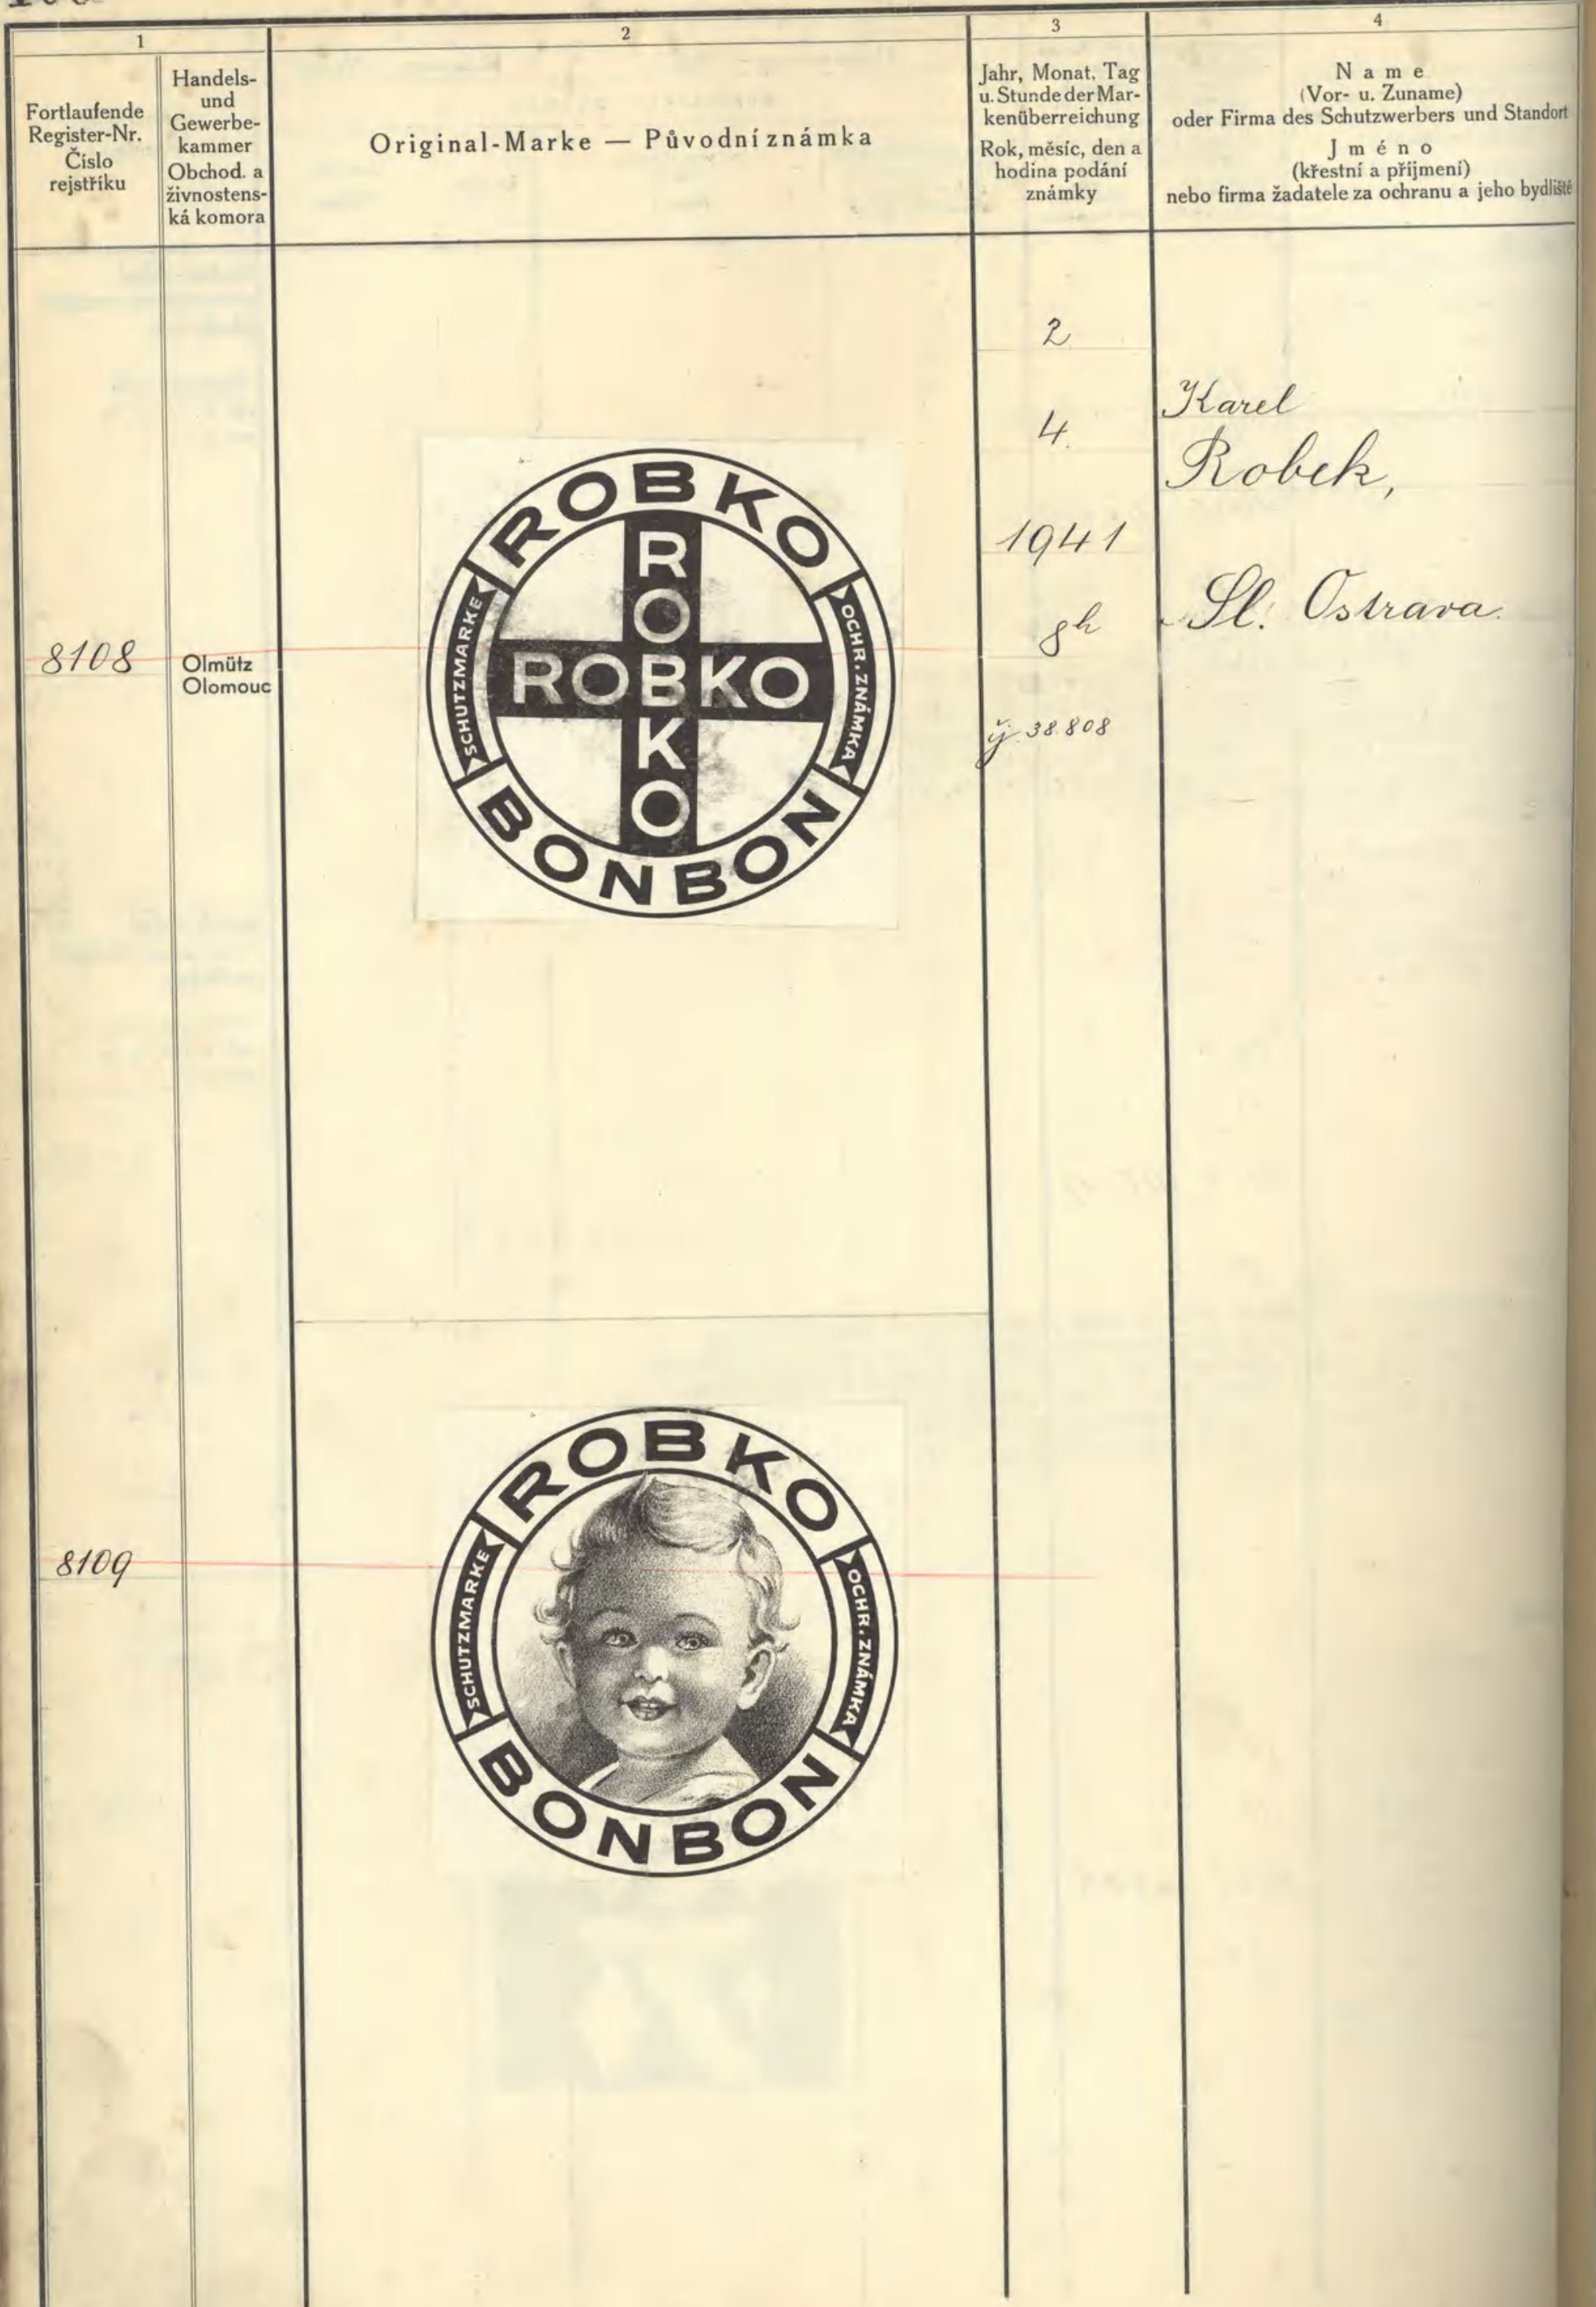 1
2
3
4
Fortlaufende
Register-Nr.
Číslo
rejstříku
Handels-
und
Gewerbe-
kammer
Obchod. a
živnostens-
ká komora
Original-Marke — Původní známka
Jahr, Monat, Tag
u. Stunde der Mar-
kenüberreichung
Rok, měsíc, den a
hodina podání
známky
Name
(Vor- u. Zuname)
oder Firma des Schutzwerbers und Standort
Jméno
(křestní a příjmení)
nebo firma žadatele za ochranu a jeho bydliště
8108
Olmütz
Olomouc
ROBKO
SCHUTZMARKE
OCHR. ZNÁMKA
ROBKO
ROBKO
BONBON
2
4.
1941
8h
38.808
Karel
Robek,
Sl. Ostrava.
8109
ROBKO
SCHUTZMARKE
OCHR. ZNÁMKA
BONBON